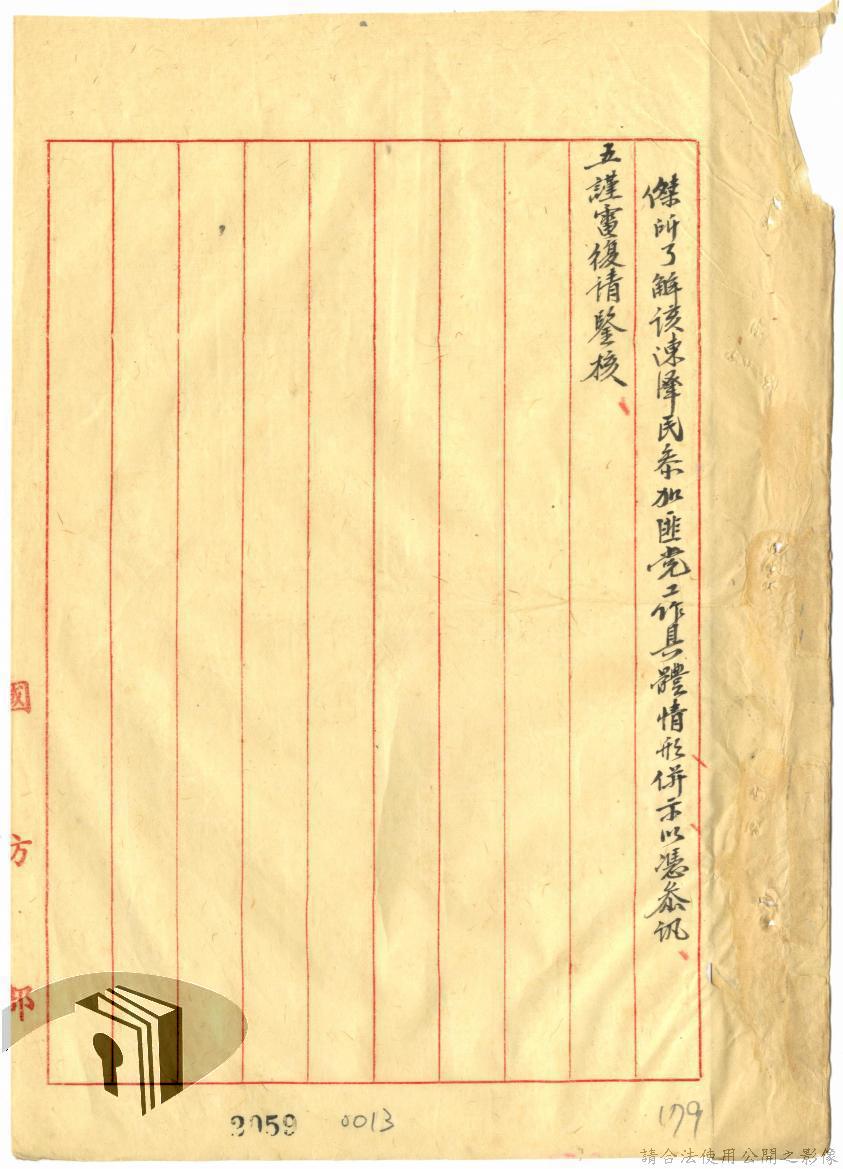 傑所了解该陳澤民参加匪党工作具體情形併示以憑参訊
五謹電復请鑒核
國方部
3059
0013
179
請合法使用公開之影像